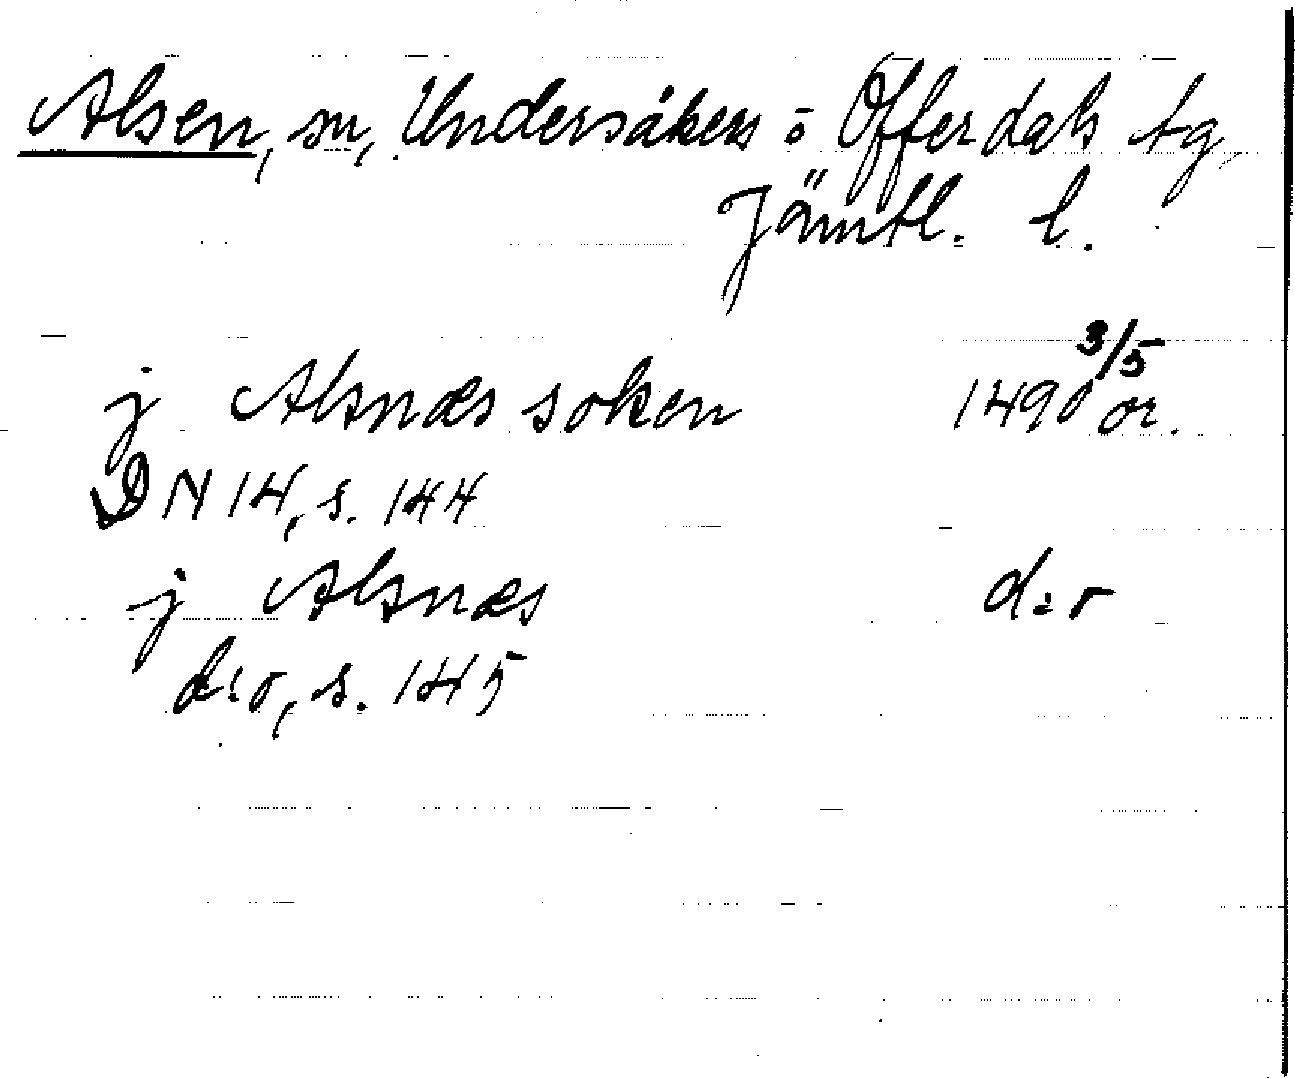 Alsen, sn, Undersåkers o Offerdals tg,
Jämtl. l.
j Alsnæs soken 1490 3/5 or.
DN 14, s. 144
j Alsnæs d:o
d:o, s. 145